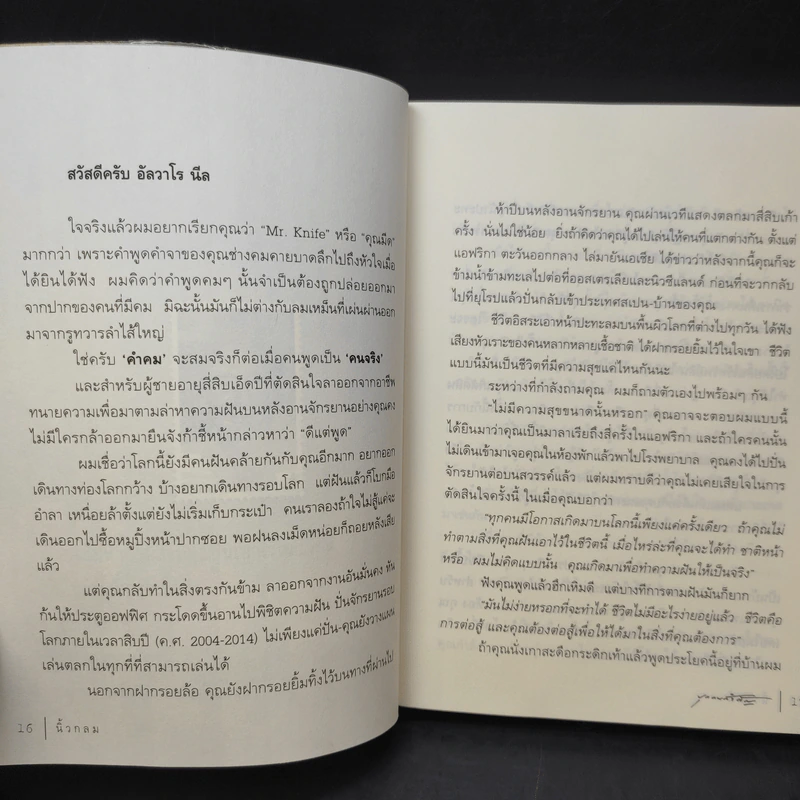 สวัสดีครับ อัลวาโร นีล
ใจจริงแล้วผมอยากเรียกคุณว่า “Mr. Knife” หรือ “คุณมีด”
มากกว่า เพราะคำพูดคำจาของคุณช่างคมคายบาดลึกไปถึงหัวใจเมื่อ
ได้ยินได้ฟัง ผมคิดว่าคำพูดคมๆ นั้นจำเป็นต้องถูกปล่อยออกมา
จากปากของคนที่มีคม มิฉะนั้นมันก็ไม่ต่างกับลมเหม็นที่เผ่นผ่านออก
มาจากรูทวารลำไส้ใหญ่
ใช่ครับ ‘คำคม’ จะสมจริงก็ต่อเมื่อคนพูดเป็น ‘คนจริง’
และสำหรับผู้ชายอายุสี่สิบเอ็ดปีที่ตัดสินใจลาออกจากอาชีพ
ทนายความเพื่อมาตามล่าหาความฝันบนหลังอานจักรยานอย่างคุณคง
ไม่มีใครกล้าออกมายืนจังก้าชี้หน้ากล่าวหาว่า “ดีแต่พูด”
ผมเชื่อว่าโลกนี้ยังมีคนฝันคล้ายกันกับคุณอีกมาก อยากออก
เดินทางท่องโลกกว้าง บ้างอยากเดินทางรอบโลก แต่ฝันแล้วก็โบกมือ
อำลา เหนื่อยล้าตั้งแต่ยังไม่เริ่มเก็บกระเป๋า คนเราลองถ้าใจไม่สู้แค่จะ
เดินออกไปซื้อหมูปิ้งหน้าปากซอย พอฝนลงเม็ดหน่อยก็ถอยหลังเสีย
แล้ว
แต่คุณกลับทำในสิ่งตรงกันข้าม ลาออกจากงานอันมั่นคง หัน
ก้นให้ประตูออฟฟิศ กระโดดขึ้นอานไปพิชิตความฝัน ปั่นจักรยานรอบ
โลกภายในเวลาสิบปี (ค.ศ. 2004-2014) ไม่เพียงแค่ปั่น-คุณยังวางแผน
เล่นตลกในทุกที่ที่สามารถเล่นได้
นอกจากฝากรอยล้อ คุณยังฝากรอยยิ้มทิ้งไว้บนทางที่ผ่านไป
16 | นิ้วกลม
ห้าปีบนหลังอานจักรยาน คุณผ่านเวทีแสดงตลกมาสี่สิบเก้า
ครั้ง นั่นไม่ใช่น้อย ยิ่งถ้าคิดว่าคุณได้ไปเล่นให้คนที่แตกต่างกัน ตั้งแต่
แอฟริกา ตะวันออกกลาง ไล่มายันเอเชีย ได้ข่าวว่าหลังจากนี้คุณก็จะ
ข้ามน้ำข้ามทะเลไปต่อที่ออสเตรเลียและนิวซีแลนด์ ก่อนที่จะวกกลับ
ไปที่ยุโรปแล้วปั่นกลับเข้าประเทศสเปน-บ้านของคุณ
ชีวิตอิสระเอาหน้าปะทะลมบนพื้นผิวโลกที่ต่างไปทุกวัน ได้ฟัง
เสียงหัวเราะของคนหลากหลายเชื้อชาติ ได้ฝากรอยยิ้มไว้ในใจเขา ชีวิต
แบบนี้มันเป็นชีวิตที่มีความสุขแค่ไหนกันนะ
ระหว่างที่กำลังถามคุณ ผมก็ถามตัวเองไปพร้อมๆ กัน
“ไม่มีความสุขขนาดนั้นหรอก” คุณอาจจะตอบผมแบบนี้
ได้ยินมาว่าคุณเป็นมาลาเรียถึงสี่ครั้งในแอฟริกา และถ้าใครคนนั้น
ไม่เดินเข้ามาเจอคุณในห้องพักแล้วพาไปโรงพยาบาล คุณคงได้ไปปั่น
จักรยานต่อบนสวรรค์แล้ว แต่ผมทราบดีว่าคุณไม่เคยเสียใจในการ
ตัดสินใจครั้งนี้ ในเมื่อคุณบอกว่า
“ทุกคนมีโอกาสเกิดมาบนโลกนี้เพียงแค่ครั้งเดียว ถ้าคุณไม่
ทำตามสิ่งที่คุณฝันเอาไว้ในชีวิตนี้ เมื่อไหร่ล่ะที่คุณจะได้ทำ ชาติหน้า
หรือ ผมไม่คิดแบบนั้น คุณเกิดมาเพื่อทำความฝันให้เป็นจริง”
ฟังคุณพูดแล้วฮึกเหิมดี แต่บางทีการตามฝันมันก็ยาก
“มันไม่ง่ายหรอกที่จะทำได้ ชีวิตไม่มีอะไรง่ายอยู่แล้ว ชีวิตคือ
การต่อสู้ และคุณต้องต่อสู้เพื่อให้ได้มาในสิ่งที่คุณต้องการ”
ถ้าคุณนั่งเกาสะดือกระดิกเท้าแล้วพูดประโยคนี้อยู่ที่บ้านผม